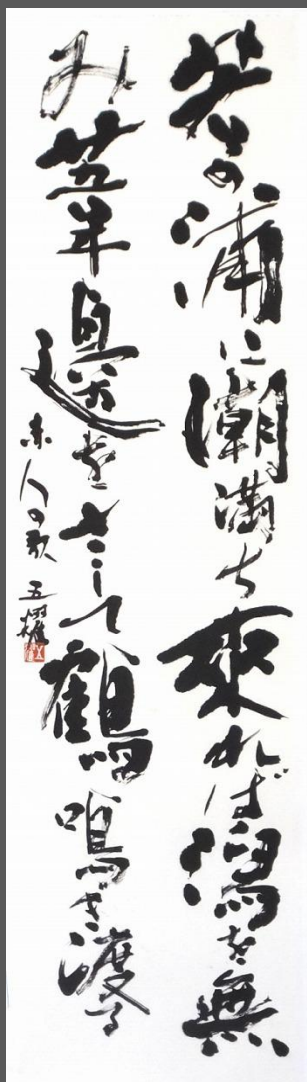 若の浦に潮満ち來れば潟を無
み葦邊をさして鶴鳴き渡る
赤人の歌 五